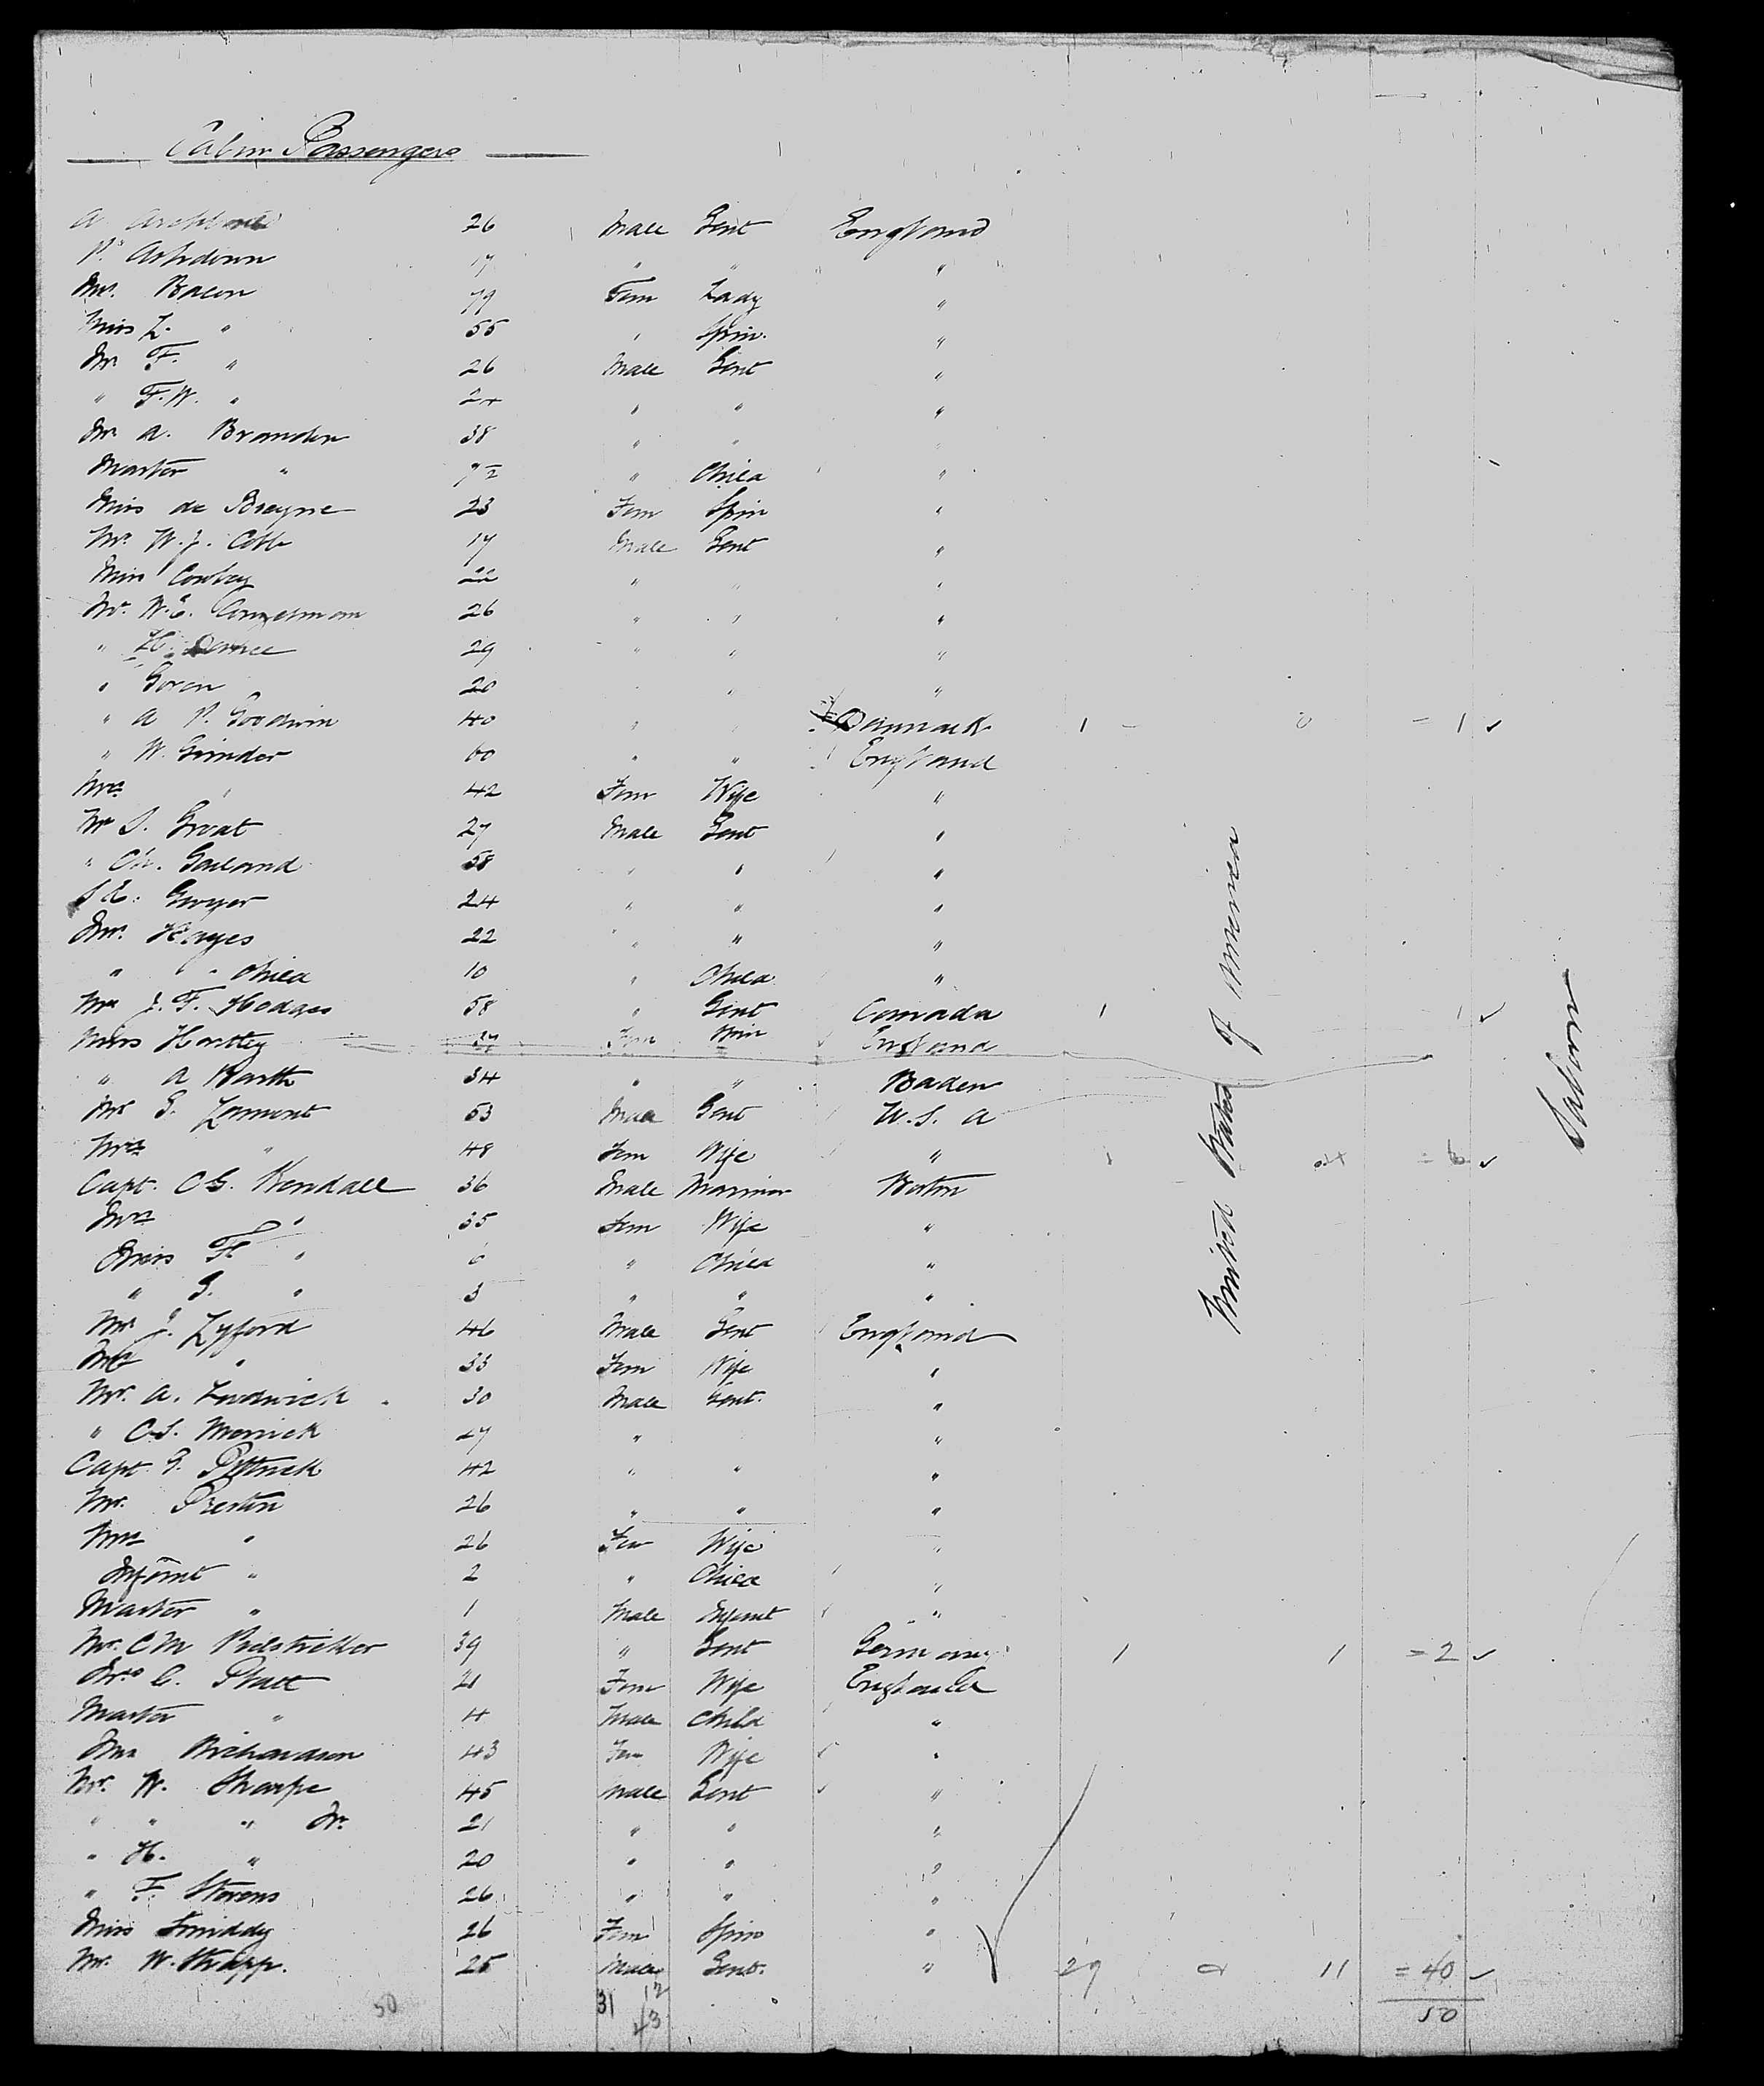 Cabin Passengers
A 26 Male Gent England
P. Ashdown 17 " " "
Mrs. Bacon 79 Fem Lady "
Miss L. " 55 " Spin. "
Mr F. " 26 Male Gent "
" F.W. " 24 " " "
Mr A. Brandon 38 " " "
Master " " Child "
Miss de Breyne 23 Fem Spin "
Mr. W.J. Cobb 17 Male Gent "
Miss Cowley 22 " " "
Mr. W.E. 26 " " "
" H. 29 " " "
" Goren 20 " "
" A P. Goodwin 40 " " Denmark 1 - 0 - 1 ✓
" W. Grinder 60 " " England
Mrs " 42 Fem Wife "
Mr S. Groat 27 Male Gent "
" Ch. Garland 58 " " "
S E. Gwyer 24 " " "
Mr. Hayes 22 " " "
" " Child 10 " Child "
Mr J. F. Hodges 58 " Gent Canada 1 1 ✓
Miss Hartley 37 Fem Spin England
" A Barth 34 " " Baden
Mr G. Lamont 53 Male Gent U.S. A
Mrs " 48 Fem Wife " ✓
Capt. C G. Kendall 36 Male Mariner Boston
Mrs " 35 Fem Wife "
Miss F " 6 " Child "
" G. " 3 " " "
Mr J. Lyford 46 Male Gent England
Mrs " 33 Fem Wife "
Mr. A. Ludwick 30 Male Gent. "
" C.S. Merrick 27 " "
Capt. G. 42 " " "
Mr. Preston 26 " " "
Mrs " 26 Fem Wife "
Infant " 2 " Child "
Master " 1 Male Infant "
Mr. C M Pielsticker 39 " Gent Germany 1 1 = 2 ✓
Mrs C. Platt 21 Fem Wife England
Master " 4 Male Child "
Mrs Richardson 43 Fem Wife "
Mr. W. Sharpe 45 Male Gent "
" " " Jr. 21 " " "
" H. " 20 " " "
" F. Stevens 26 " " "
Miss Smiddy 26 Fem Spin "
Mr. W. Strapp. 25 Male Gent. " 29 11 = 40 ✓
50 31 12 50
43
United States of America
Saloon